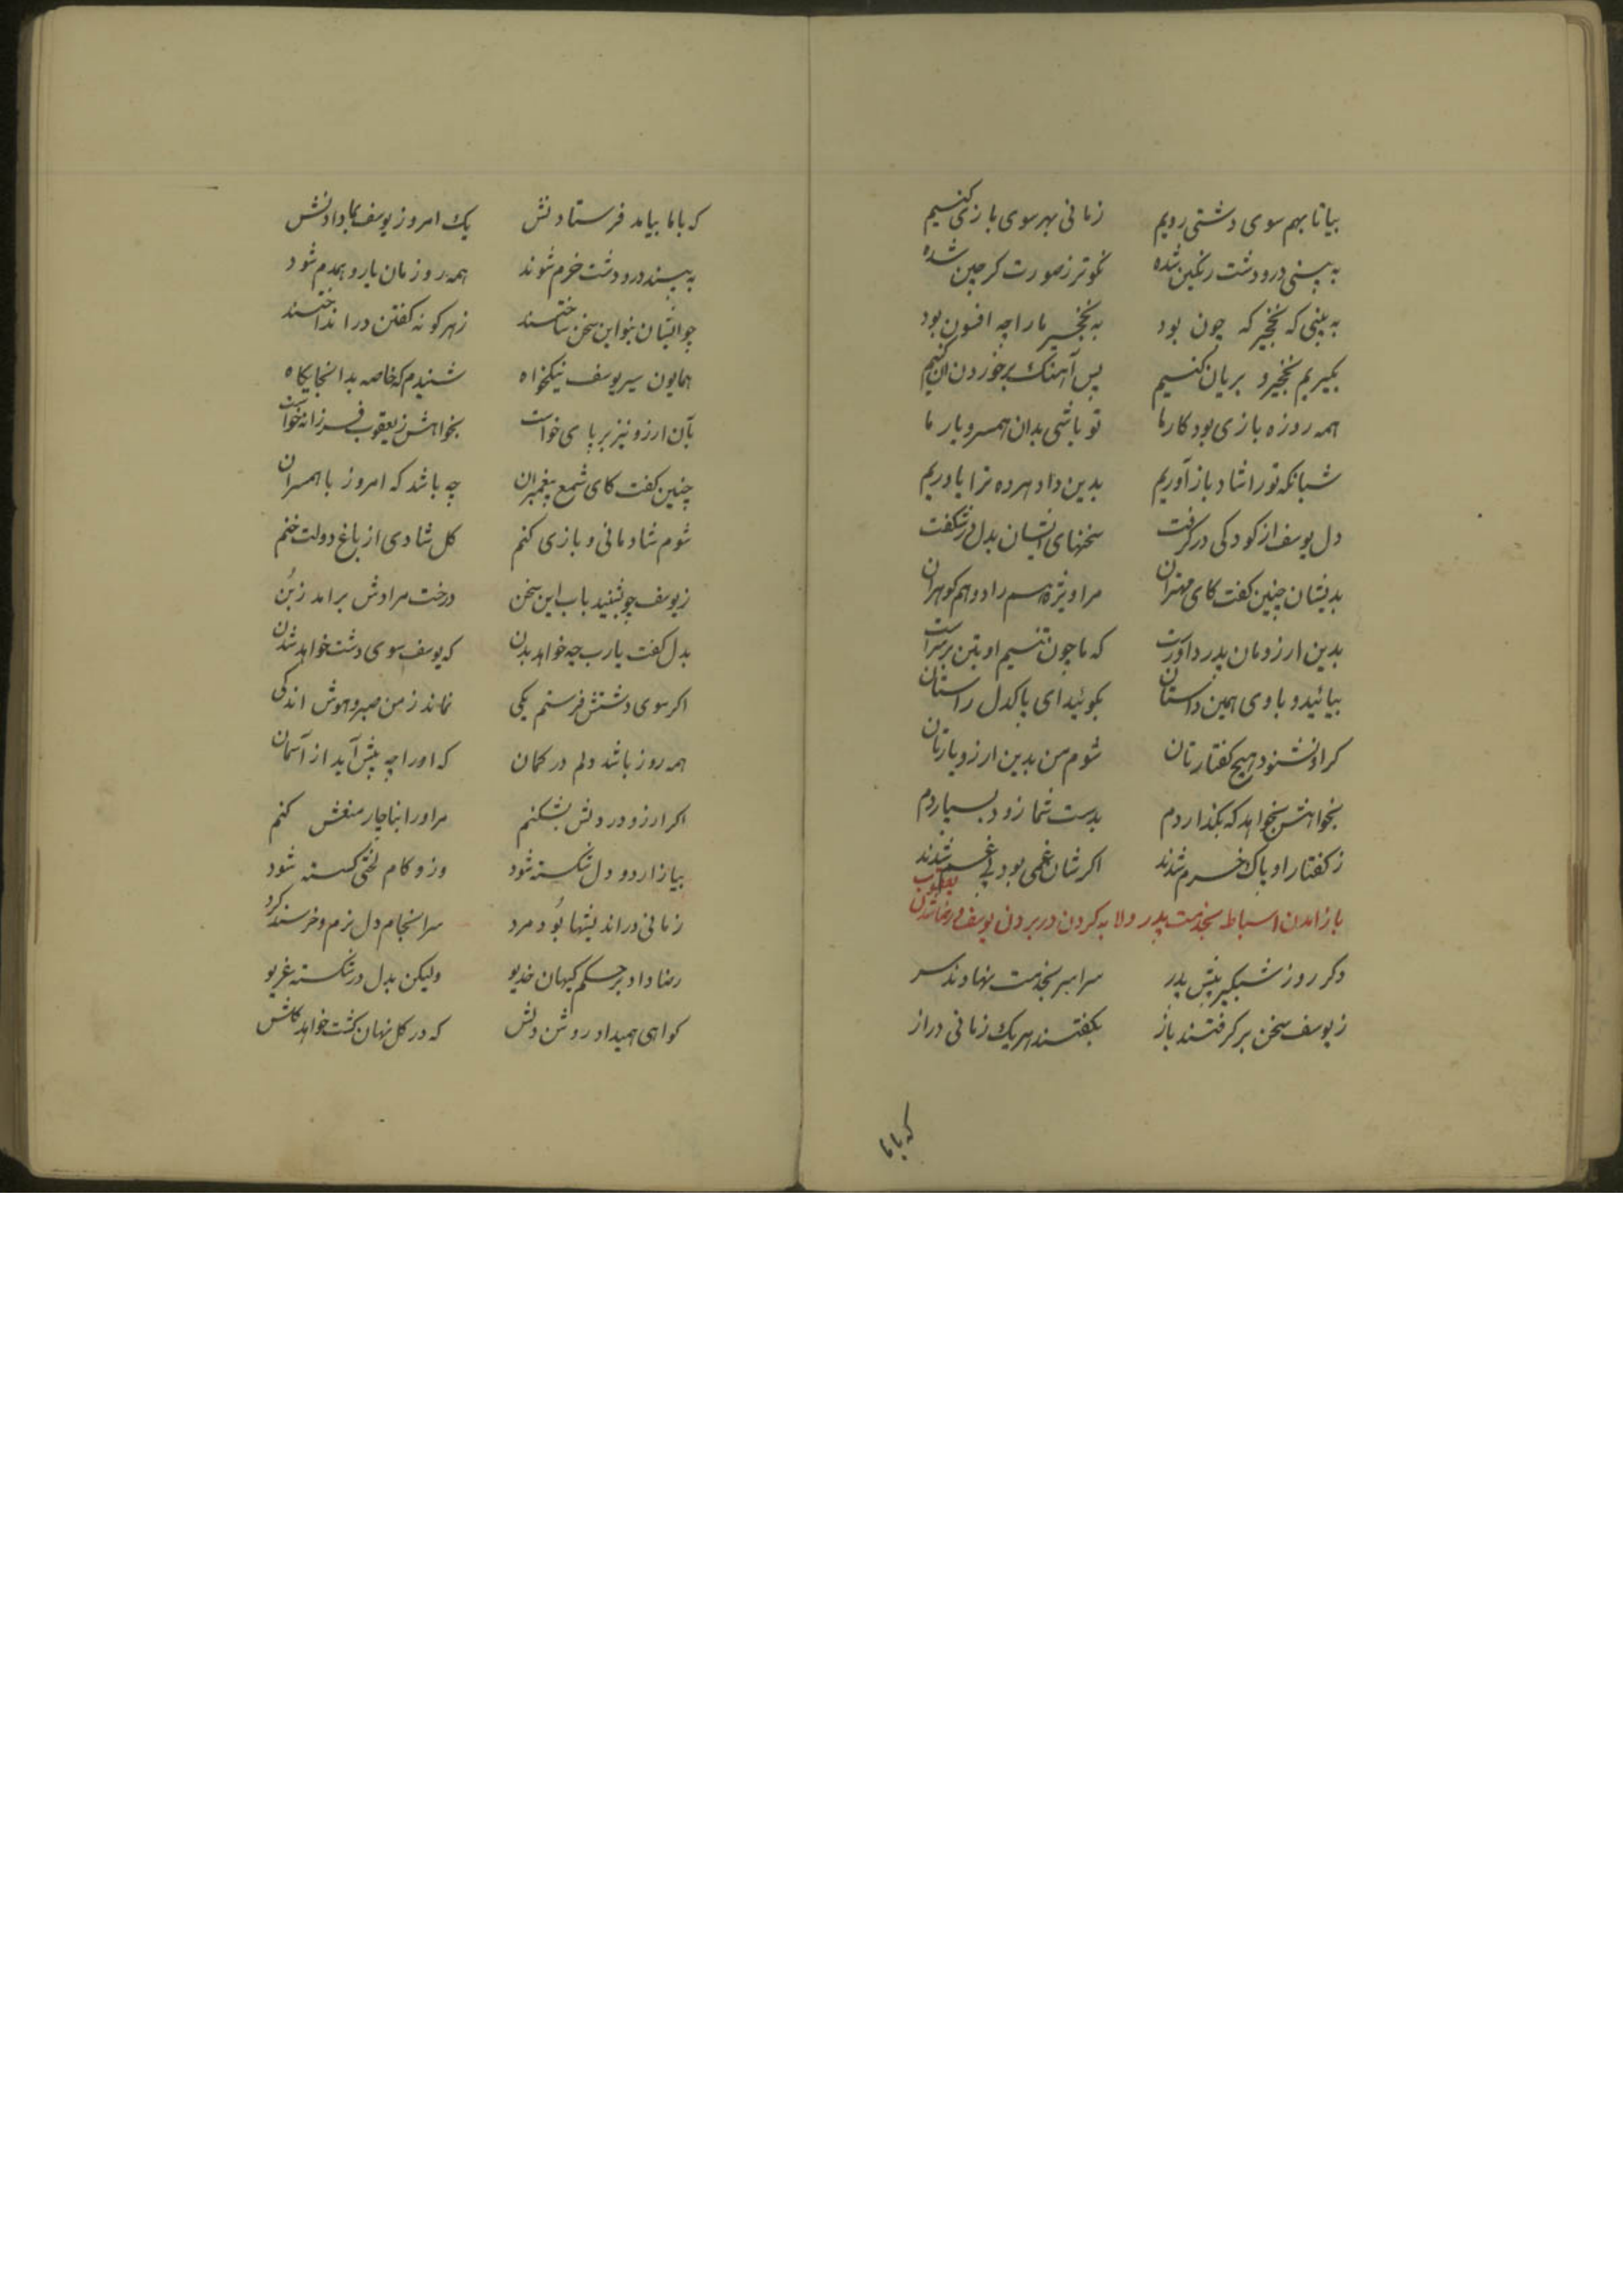 بیا تا بهم سوی دشتی رویم زمانی بهر سوی بازی کنیم
به بینی در و دشت رنگین شده نکوتر ز صورت کر چین شده
به بینی که نخجیر که چون بود به نخجیر ما را چه افسون بود
بگیریم نخجیر و بریان کنیم پس آهنک بر خوردن آن کنیم
همه روزه بازی بود کار ما تو باشی بدان همسر و یار ما
شبانکه تو را شاد باز آوریم بدین داد هر ده ترا یاوریم
دل یوسف از کودکی در گرفت سخنهای ایشان بدل در شکفت
بدیشان چنین کفت کای مهتران مرا ویژه هم راد و هم کوهران
بدین ارزومان پدر داورست که ما چون تنیم او بتن بر سرست
بیائید و با وی همین داستان بکوئید ای پاکدل راستان
کر او نشنود هیچ کفتارتان شوم من بدین ارزو یارتان
بخواهش بخواهد که بکذاردم بدست شما زود بسپاردم
ز کفتار او پاک خرم شدند اکرشان غمی بود بی غم شدند
باز امدن اسباط بخدمت پدر و لابه کردن در بردن یوسف و رضا شدن یعقوب
دکر روز شبکیر پیش پدر سراسر بخدمت نهادند سر
ز یوسف سخن بر کرفتند باز بکفتند هر یک زمانی دراز
که باما
که باما بیامد فرستادنش یک امروز یوسف بما دادنش
به بیند در و دشت خرم شوند همه روز مان یار و همدم شود
چو ایشان بنو این سخن ساختند ز هر کونه کفتن در انداختند
همایون سیر یوسف نیکخواه شنیدم که خاصه بدانجایکاه
بآن ارزو نیز بر پای خواست بخواهش ز یعقوب فرزانه خواست
چنین کفت کای شمع پیغمبران چه باشد که امروز با همسران
شوم شادمانی و بازی کنم کل شادی از باغ دولت خنم
ز یوسف چو بشنید باب این سخن درخت مرادش برامد ز بُن
بدل کفت یا رب چه خواهد بدن که یوسف سوی دشت خواهد شدن
اکر سوی دشتش فرستم یکی نماند ز من صبر و هوش اندکی
همه روز باشد دلم در کمان که او را چه پیش آید از آسمان
اکر ارزو در دلش بشکنم مر او را بناچار منغش کنم
بیازارد و دل شکسته شود وز و کام لختی کسسته شود
زمانی در اندیشها بُود مرد سرانجام دل نرم و خرسند کرد
رضا داد بر حکم کیهان خدیو ولیکن بدل در شکسته غریو
کواهی همیداد روشن دلش که در کل نهان کشت خواهد کلش